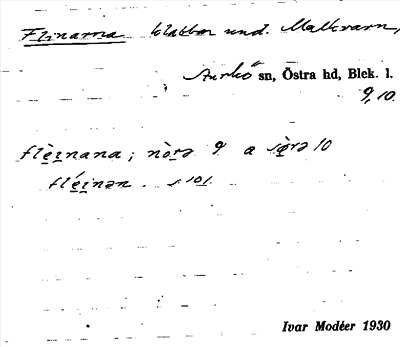 Flinarna klabbar und. Malkvarn,
Sturkö sn, Östra hd, Blek. l.
9, 10.
flèinana; nò̤rə 9 a sø̀rə 10
fléinən. s. 101
Ivar Modéer 1930